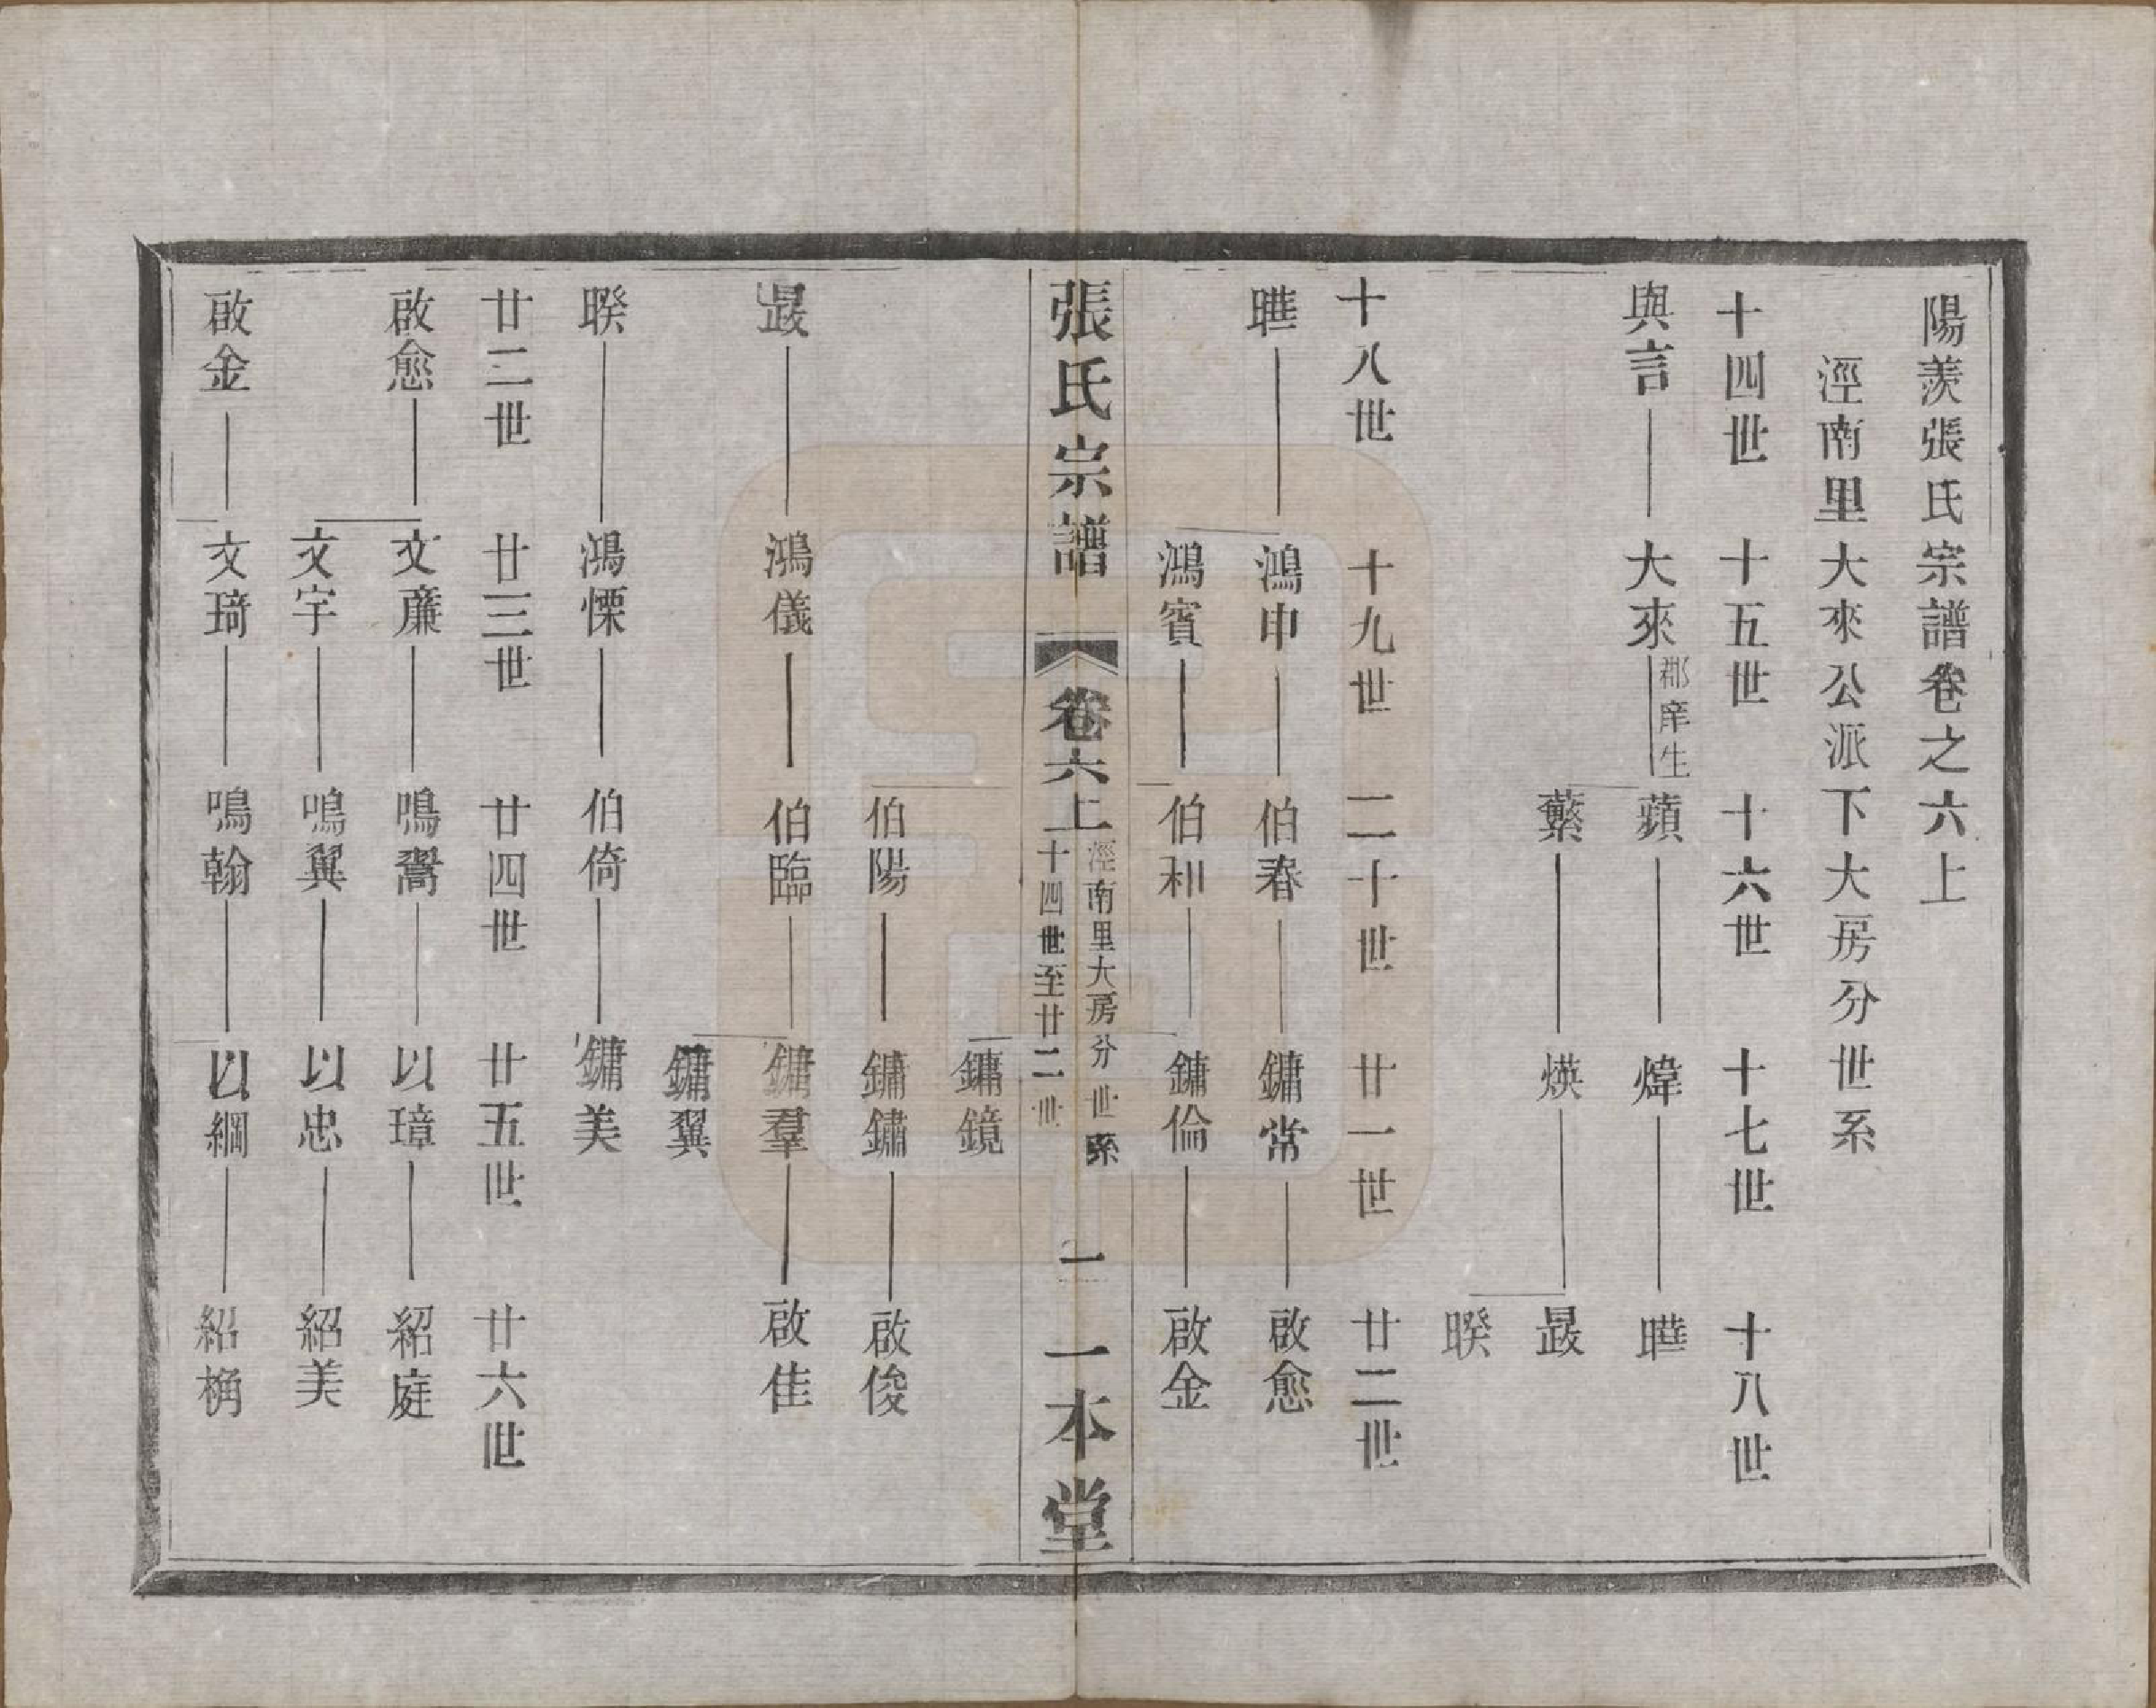 陽羨張氏宗譜卷之六上
涇南里大來公派下大房分世系
十四世 十五世 十六世 十七世 十八世
與言 大來 郡庠生 蘋 煒 曄
蘩 煐 晸
暌
十八世 十九世 二十世 廿一世 廿二世
曄 鴻申 伯春 鏞常 啟愈
鴻賓 伯和 鏞倫 啟金
張氏宗譜 卷六上 涇南里大房分世系 十四世至廿二世 一 一本堂
鏞鏡
伯陽 鏞鏽 啟俊
晸 鴻儀 伯臨 鏞羣 啟佳
鏞翼
暌 鴻慄 伯倚 鏞美
廿二世 廿三世 廿四世 廿五世 廿六世
啟愈 文廉 鳴鶱 以璋 紹庭
文宇 鳴翼 以忠 紹美
啟金 文琦 鳴翰 以綱 紹桷